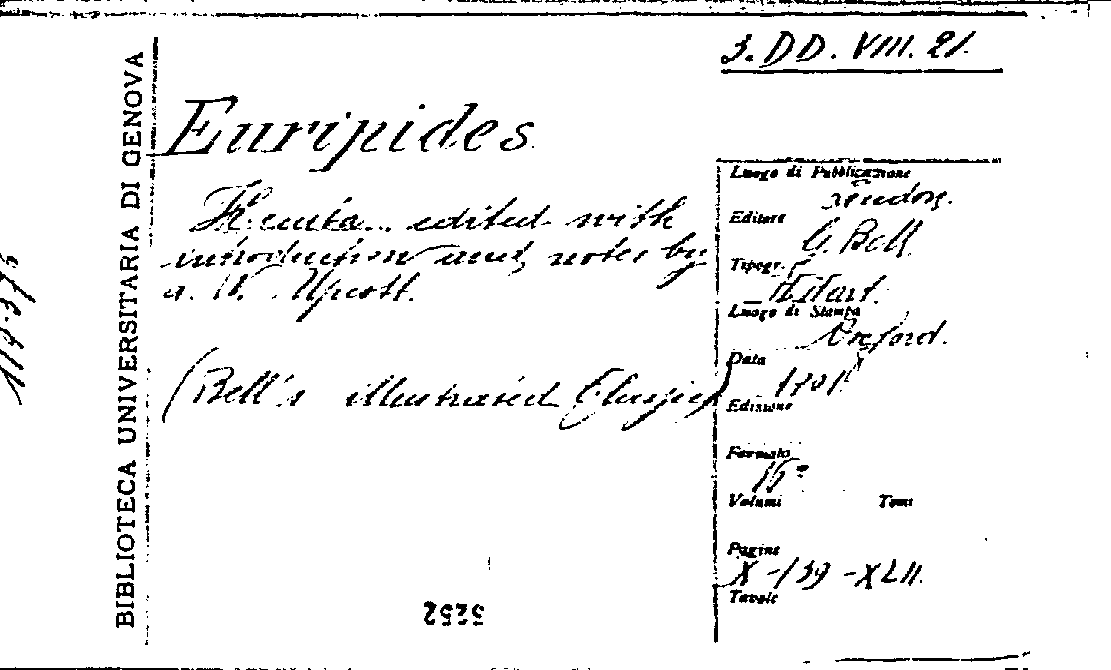 3. DD. VIII. 21.
BIBLIOTECA UNIVERSITARIA DI GENOVA
Euripides
Hecuba... edited with
introduction and notes by
a. W. Upcott.
(Bell's illustrated Classics)
Luogo di Pubblicazione
London.
Editore
G. Bell.
Tipogr.
Hart.
Luogo di Stampa
Oxford.
Data
1901
Edizione
Formato
16°
Volumi Tomi
Pagine
X-139-XLII.
Tavole
5252